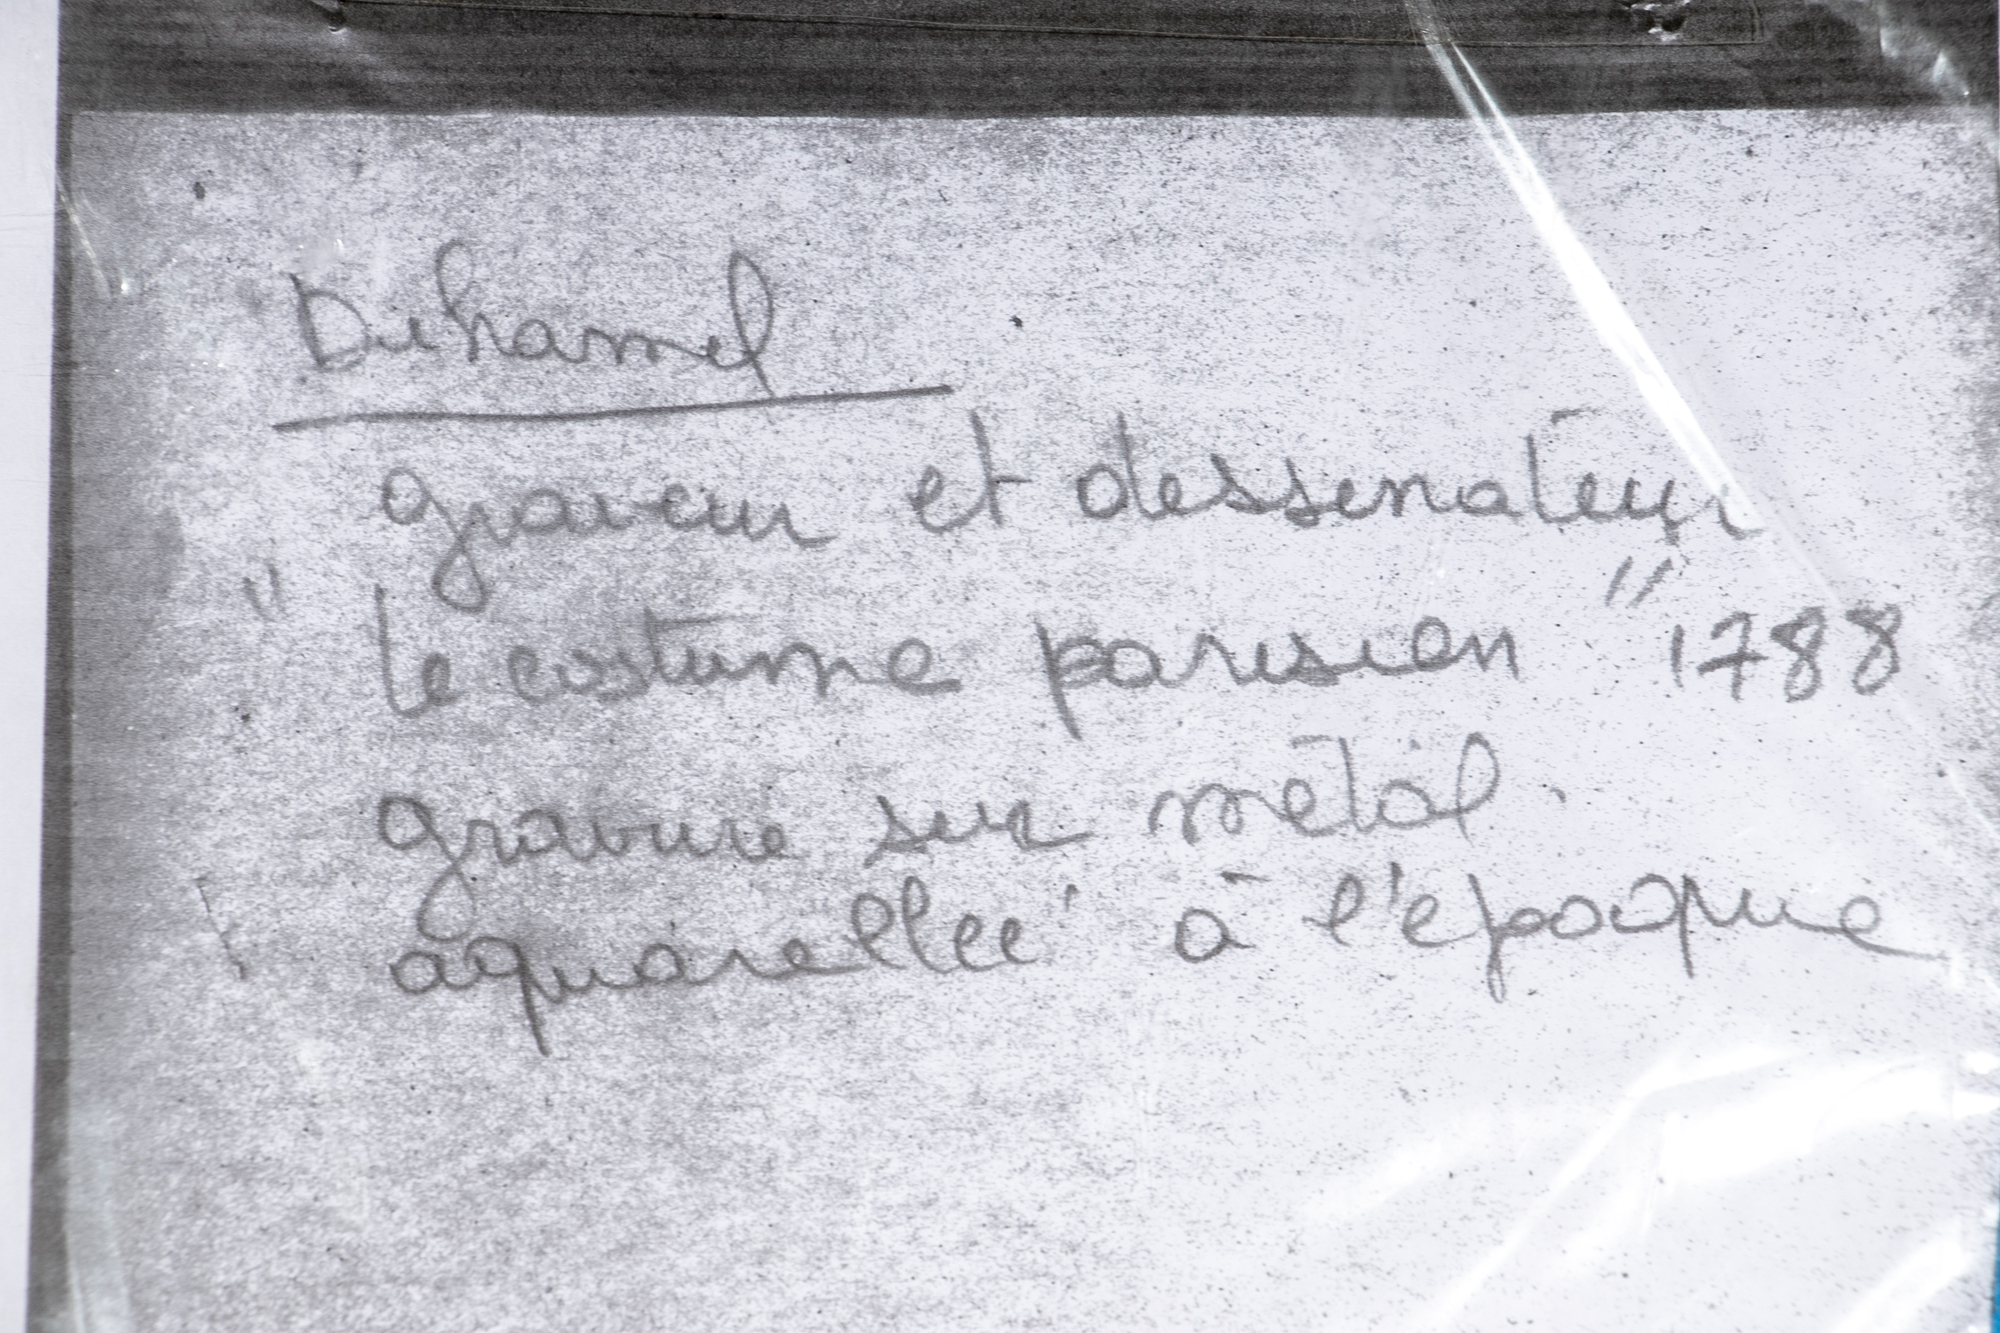 Duhamel
graveur et dessinateur
" le costume parisien " 1788
gravure sur métal.
aquarellée à l'époque